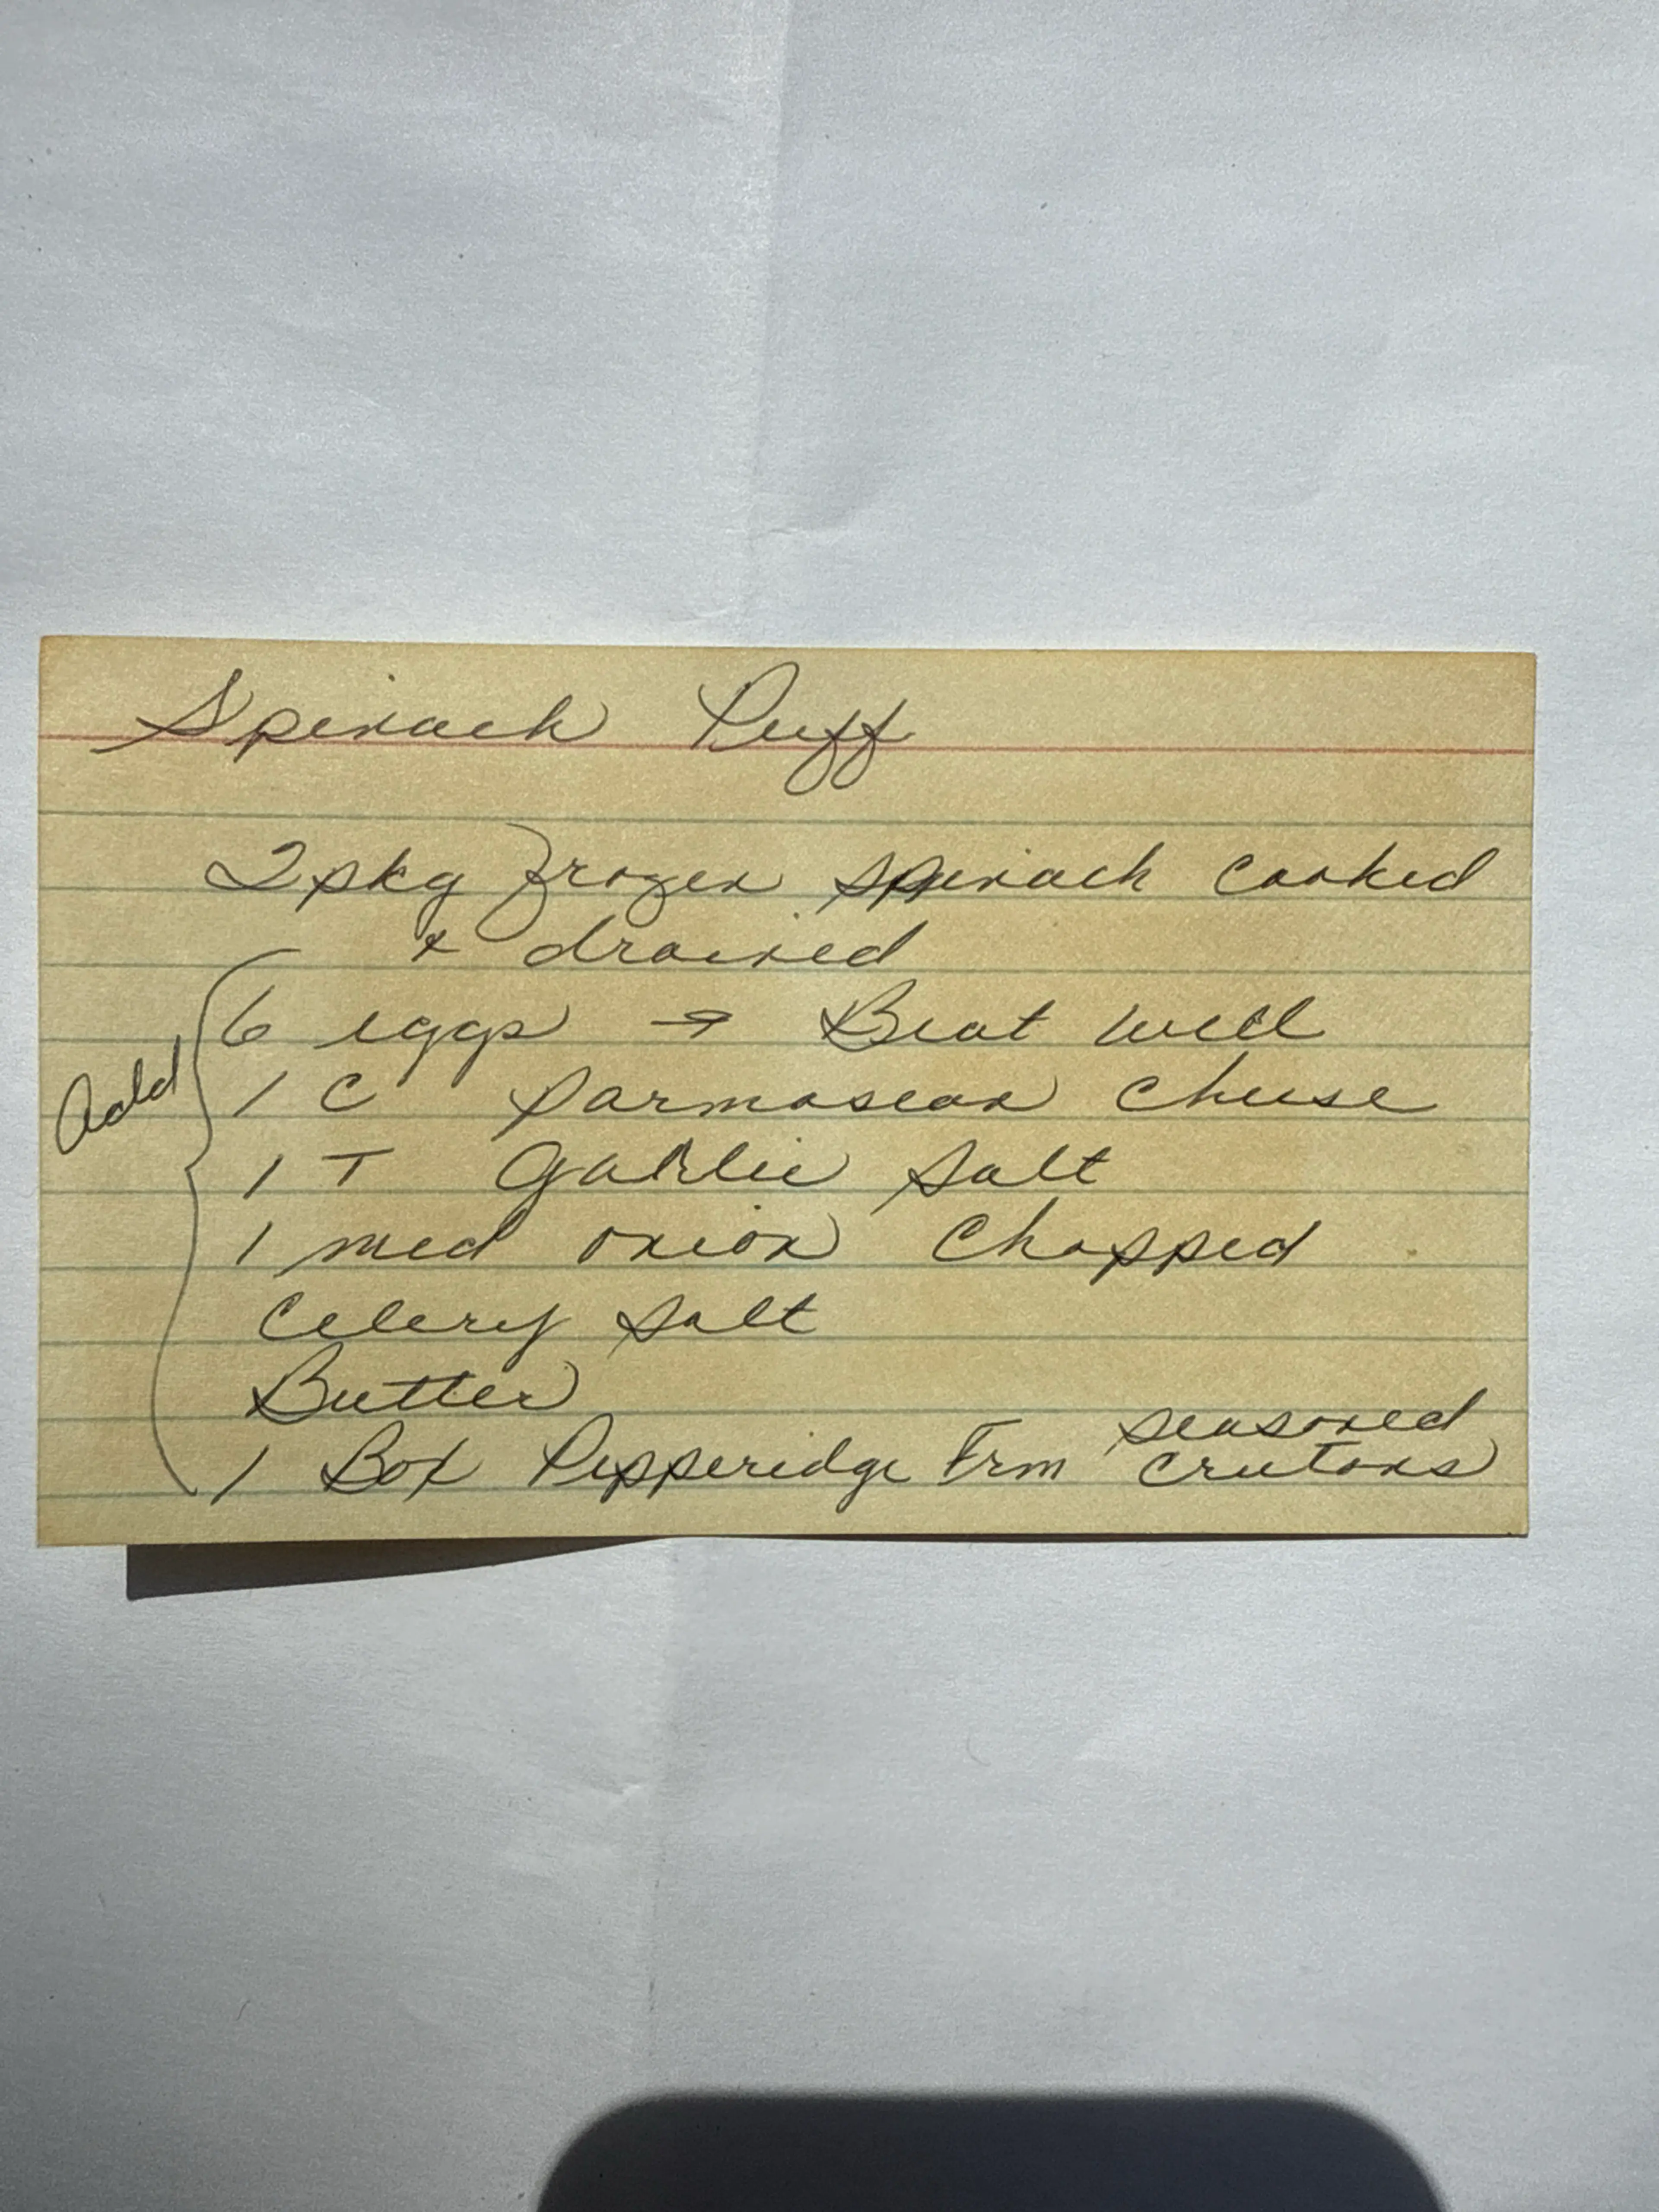 Spinach Puff
2 pkg frozen spinach cooked
& drained
6 eggs → Beat well
Add
1 C Parmasean Cheese
1 T Garlic Salt
1 med onion Chopped
Celery Salt
Butter
seasoned
1 Box Pepperidge Frm Crutons